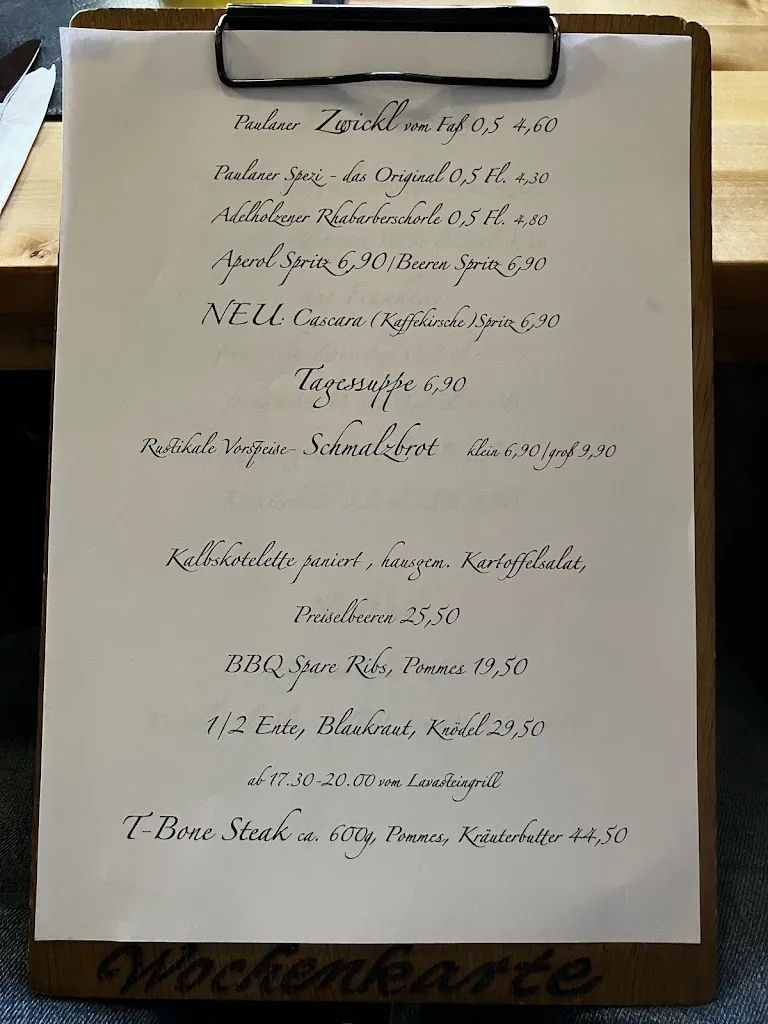 Paulaner Zwickl vom Faß 0,5 4,60
Paulaner Spezi - das Original 0,5 Fl. 4,30
Adelholzener Rhabarberschorle 0,5 Fl. 4,80
Aperol Spritz 6,90 | Beeren Spritz 6,90
NEU: Cascara (Kaffekirsche)Spritz 6,90
Tagessuppe 6,90
Rustikale Vorspeise- Schmalzbrot klein 6,90 | groß 9,90
Kalbskotelette paniert , hausgem. Kartoffelsalat,
Preiselbeeren 25,50
BBQ Spare Ribs, Pommes 19,50
1/2 Ente, Blaukraut, Knödel 29,50
ab 17.30-20.00 vom Lavasteingrill
T-Bone Steak ca. 600g, Pommes, Kräuterbutter 44,50
Wochenkarte